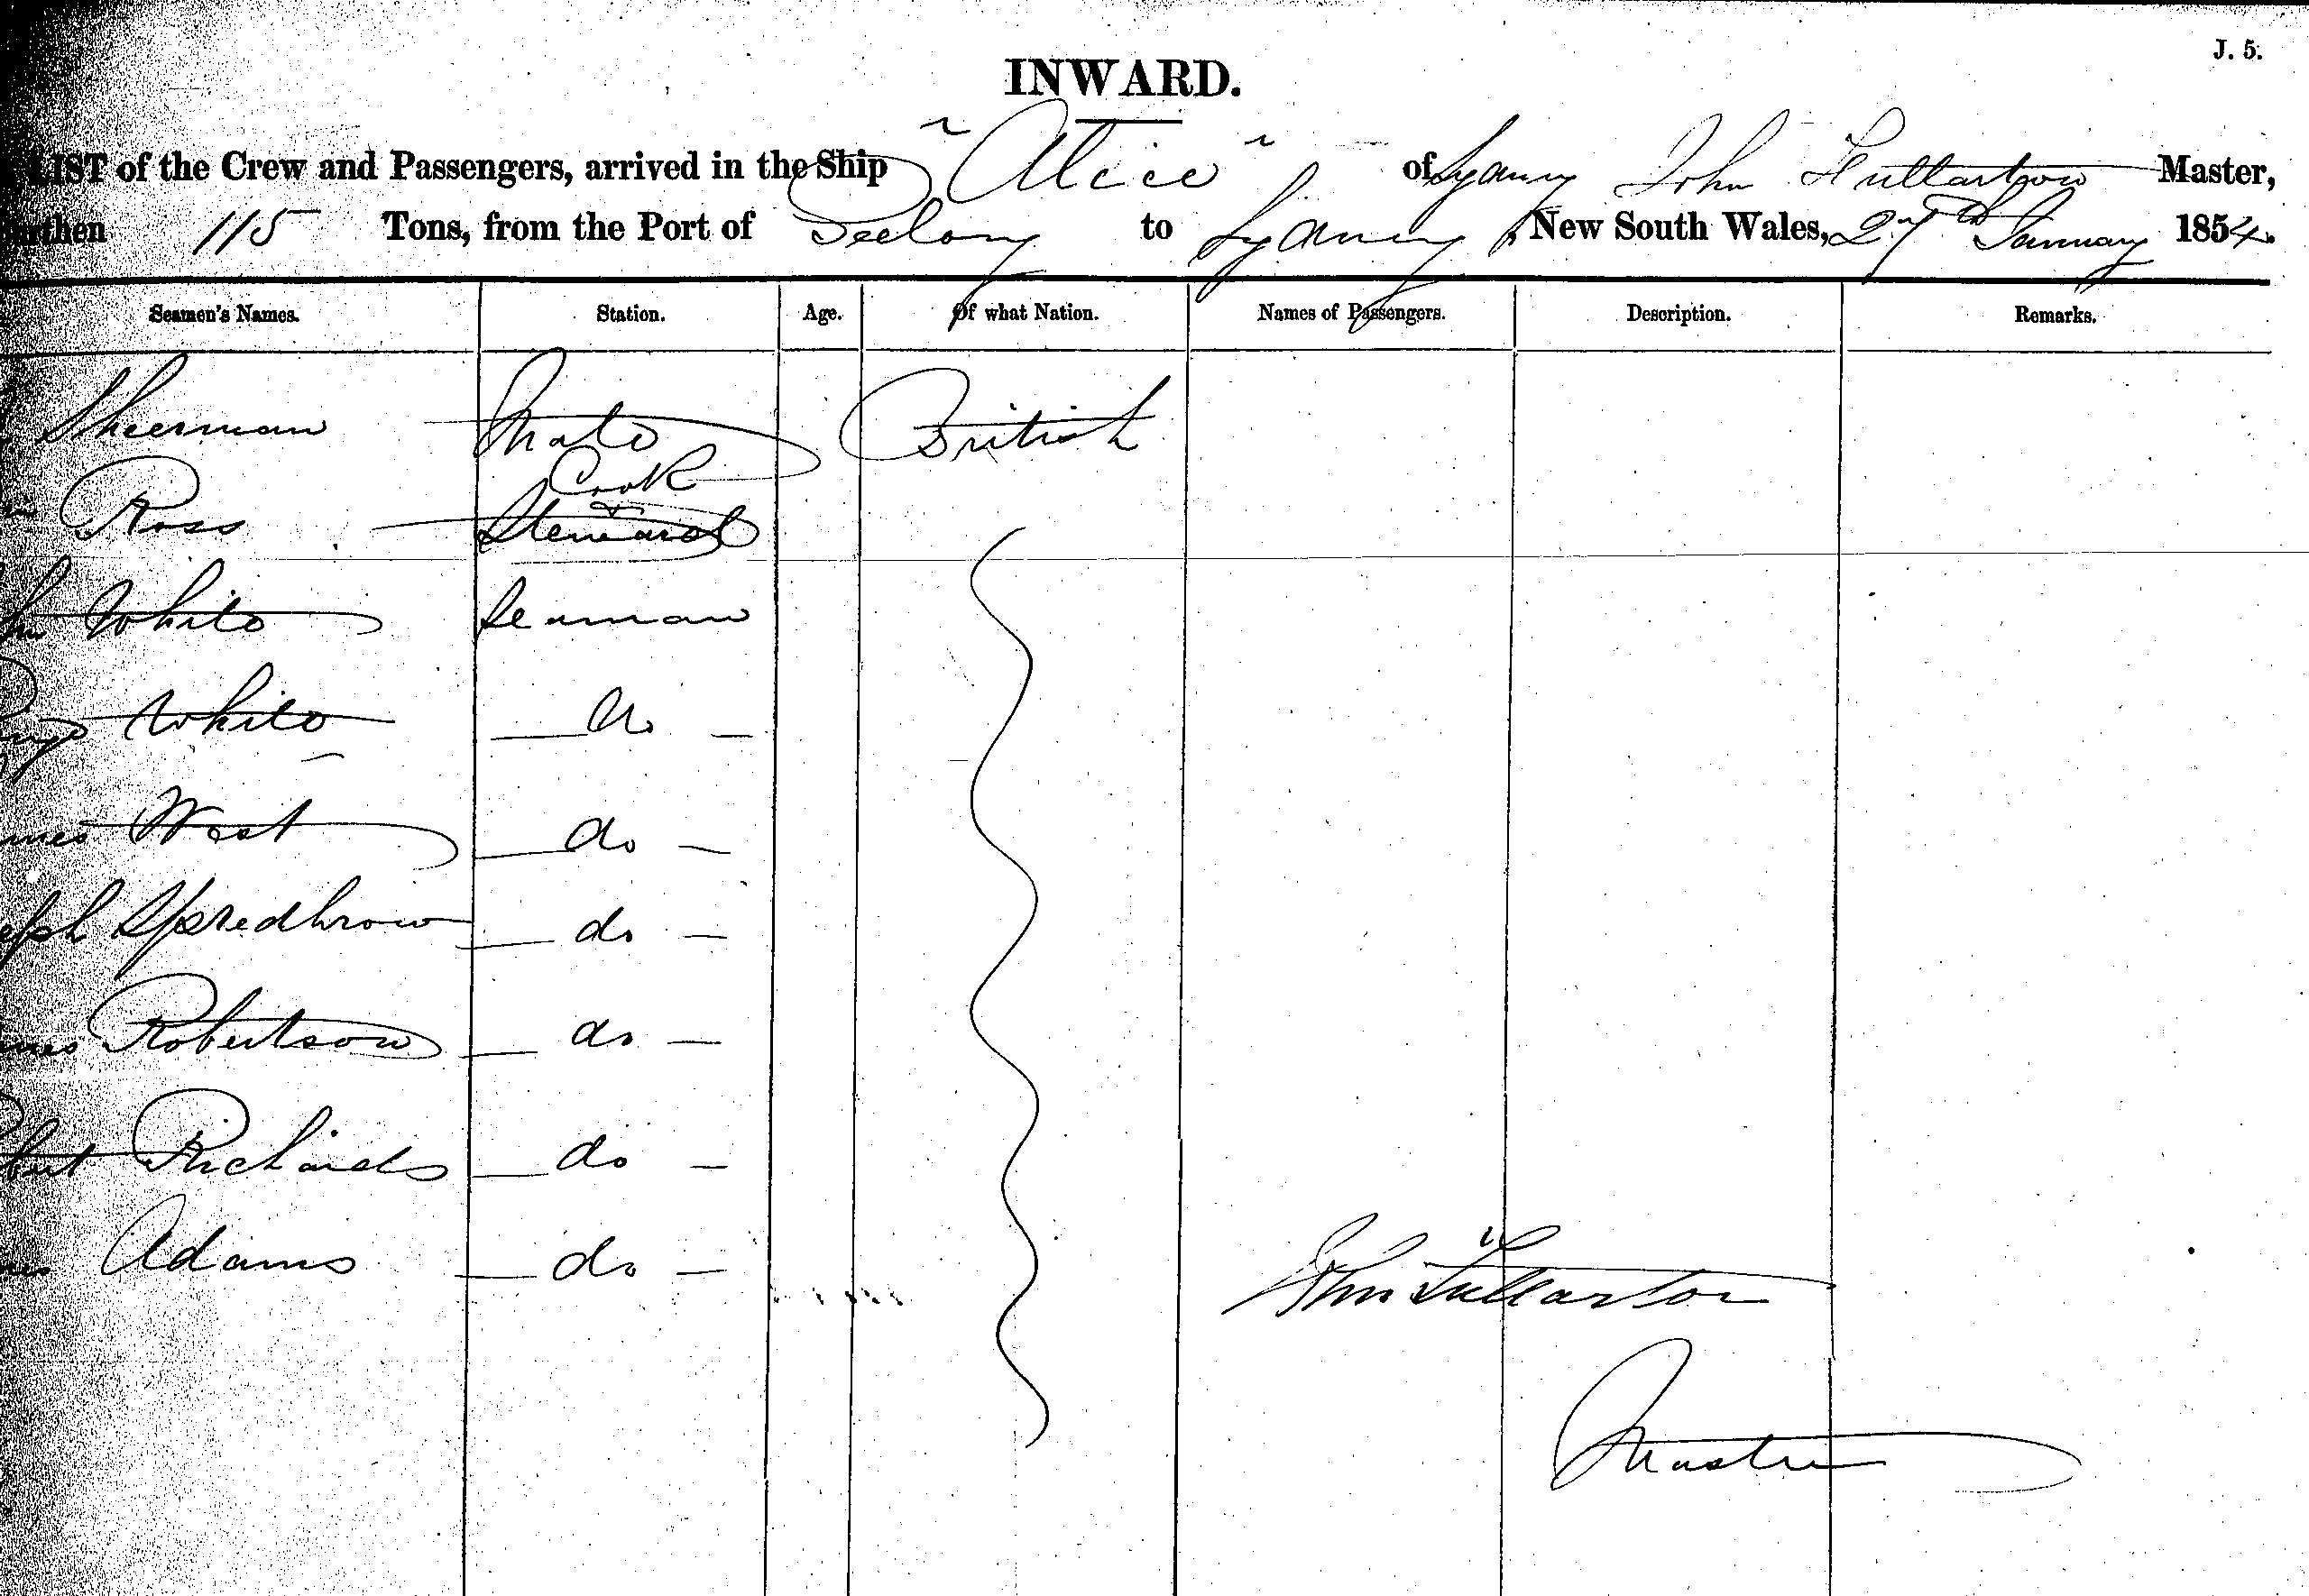 J. 5.
INWARD.
LIST of the Crew and Passengers, arrived in the Ship "Alice" of Sydney John Fullarton Master,
rthen 115 Tons, from the Port of Geelong to Sydney, New South Wales, 27th January 1854.
Seamen's Names. Station. Age. Of what Nation. Names of Passengers. Description. Remarks.
Sheerman Mate British
Ross Cook & Steward
White Seaman
White do
mes West do
eph Spredbrow do
mes Robertson do
bert Richards do
Adams do
John Fullarton
Master